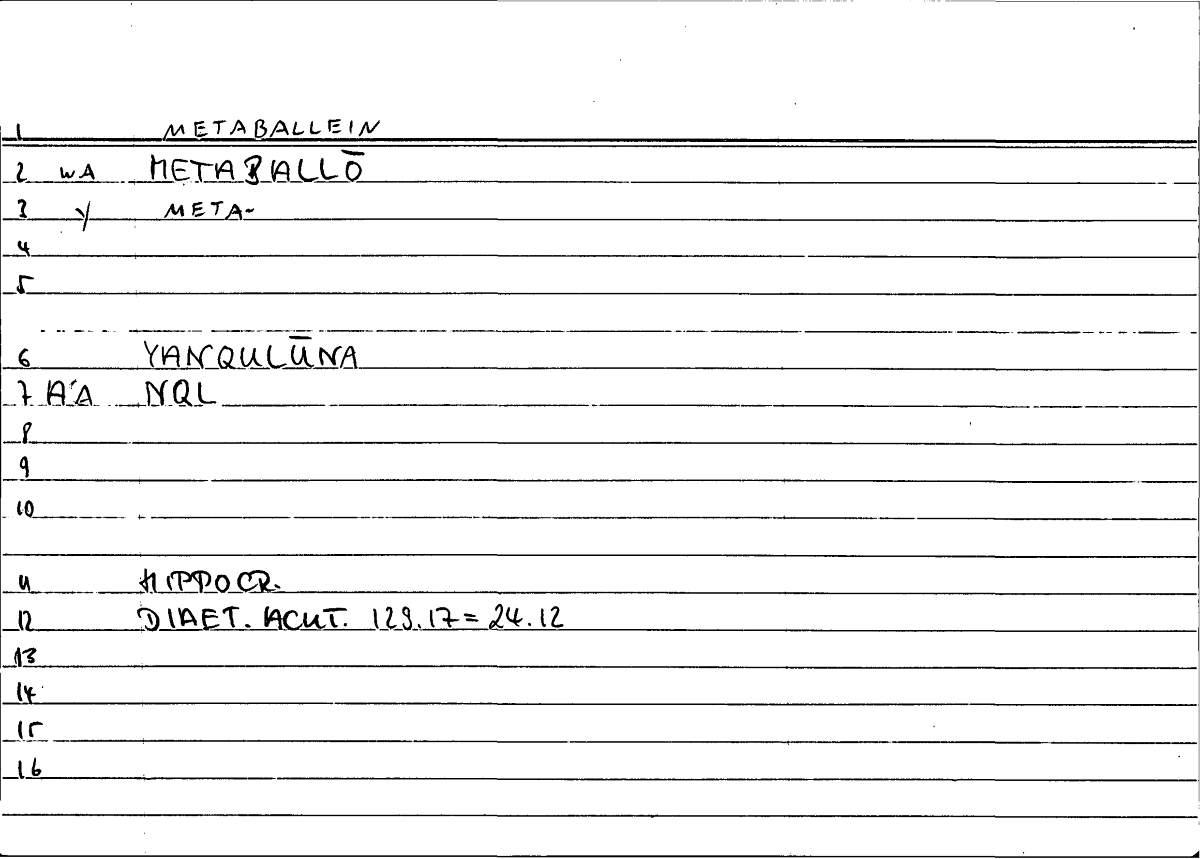 1 METABALLEIN
2 WA METABALLŌ
3 Y META-
4
5
6 YANQULŪNA
7 A'A NQL
8
9
10
11 HIPPOCR.
12 DIAET. ACUT. 129.17 = 24.12
13
14
15
16